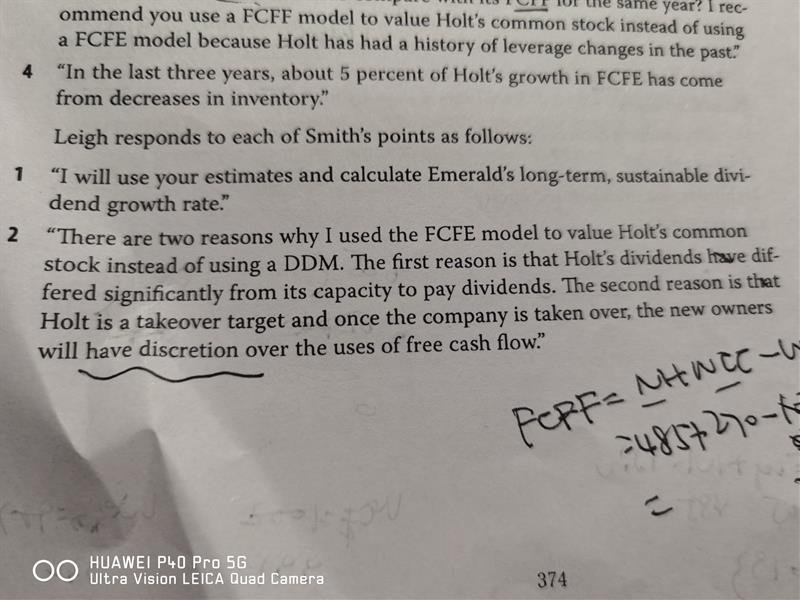 compare with its FCFF for the same year? I rec-
ommend you use a FCFF model to value Holt's common stock instead of using
a FCFE model because Holt has had a history of leverage changes in the past."
4 "In the last three years, about 5 percent of Holt's growth in FCFE has come
from decreases in inventory."
Leigh responds to each of Smith's points as follows:
1 "I will use your estimates and calculate Emerald's long-term, sustainable divi-
dend growth rate."
2 "There are two reasons why I used the FCFE model to value Holt's common
stock instead of using a DDM. The first reason is that Holt's dividends have dif-
fered significantly from its capacity to pay dividends. The second reason is that
Holt is a takeover target and once the company is taken over, the new owners
will have discretion over the uses of free cash flow."
FCFF=NI+NCC-
=485+270-
=
HUAWEI P40 Pro 5G
Ultra Vision LEICA Quad Camera
374